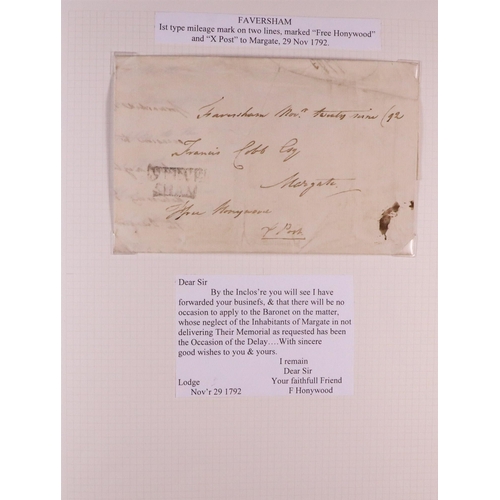 FAVERSHAM
Ist type mileage mark on two lines, marked “Free Honywood”
and “X Post” to Margate, 29 Nov 1792.
Faversham Nov.r twenty nine 92
Francis Cobb Esq
Margate
Honywood
X Post
SHAM
Dear Sir
By the Inclos're you will see I have
forwarded your businefs, & that there will be no
occasion to apply to the Baronet on the matter,
whose neglect of the Inhabitants of Margate in not
delivering Their Memorial as requested has been
the Occasion of the Delay….With sincere
good wishes to you & yours.
I remain
Dear Sir
Lodge Your faithfull Friend
Nov'r 29 1792 F Honywood